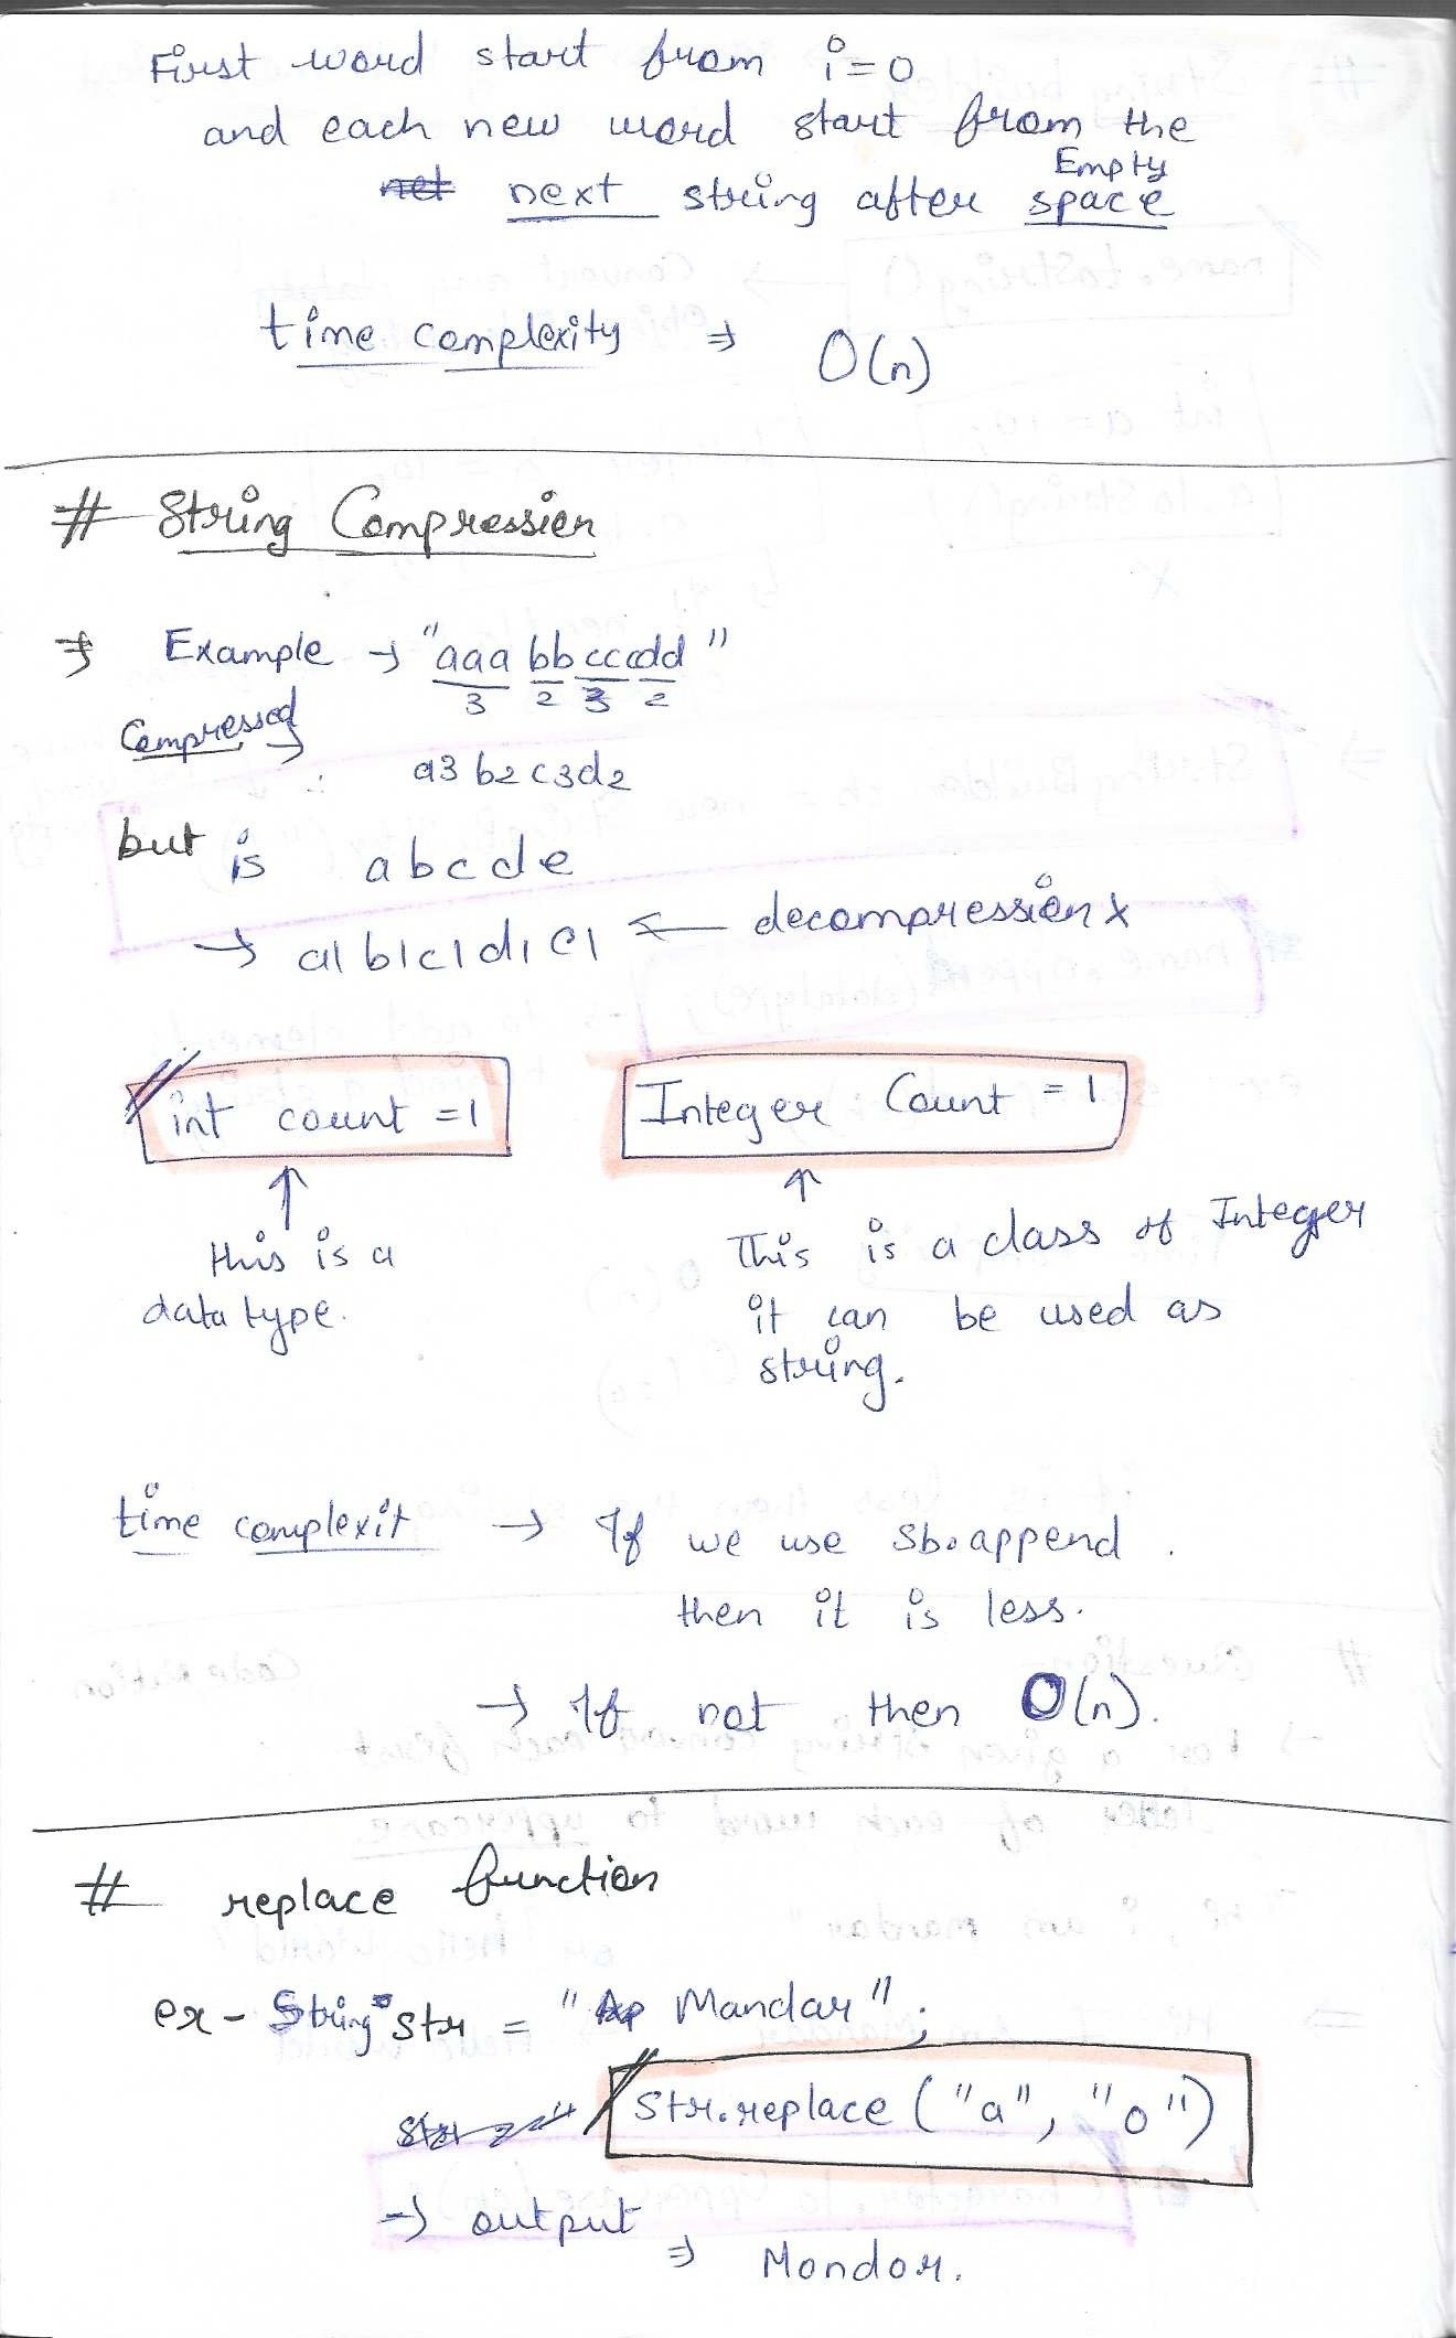 First word start from i=0
and each new word start from the
Empty
next string after space
time complexity ⇒ O(n)
# String Compression
⇒ Example → "aaabbcccdd"
3 2 3 2
Compressed →
a3b2c3d2
but is abcde
→ a1b1c1d1e1 ← decompression x
int count = 1 Integer Count = 1
↑ ↑
this is a This is a class of Integer
data type. it can be used as
string.
time complexit → If we use sb.append.
then it is less.
→ If not then O(n).
# replace function
ex - String str = "Mandar";
Str.replace("a", "o")
→ output ⇒ Mondor.